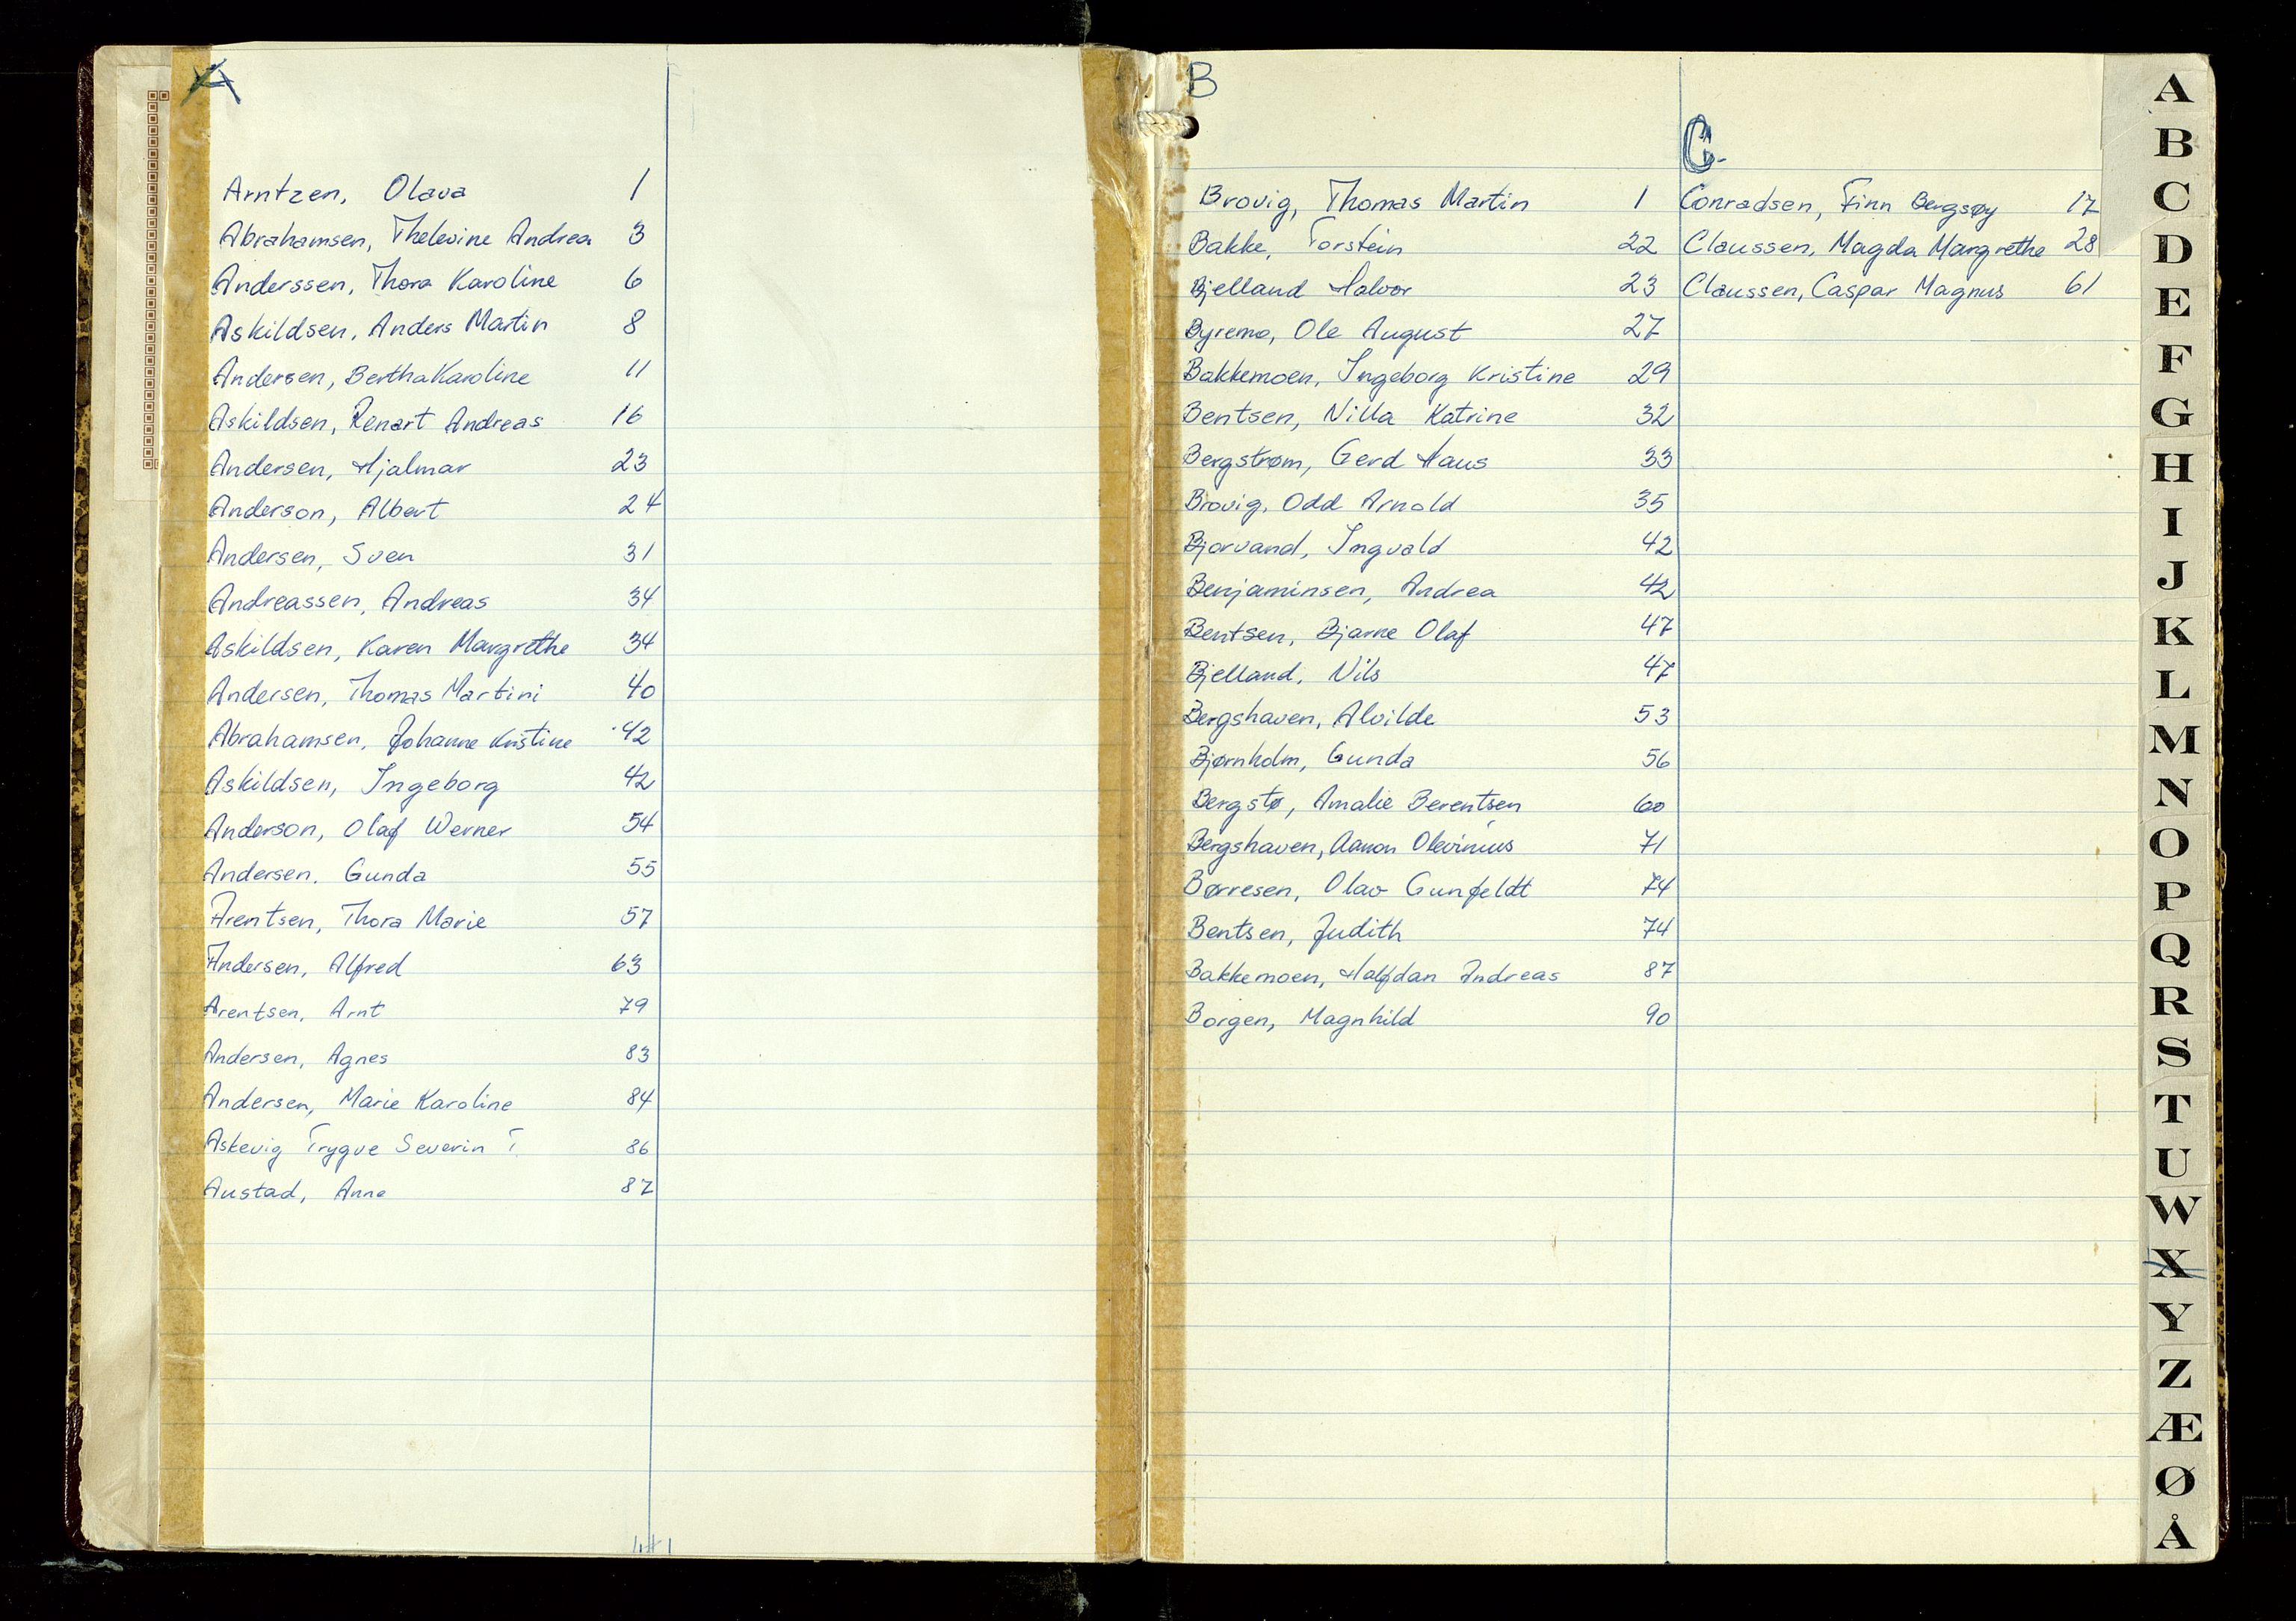 A
Arntzen, Olava 1
Abrahamsen, Thelevine Andrea 3
Anderssen, Thora Karoline 6
Askildsen, Anders Martin 8
Andersen, Bertha Karoline 11
Askildsen, Renart Andreas 16
Andersen, Hjalmar 23
Anderson, Albert 24
Andersen, Sven 31
Andreassen, Andreas 34
Askildsen, Karen Margrethe 34
Andersen, Thomas Martini 40
Abrahamsen, Johanne Kristine 42
Askildsen, Ingeborg 42
Anderson, Olaf Werner 54
Andersen, Gunda 55
Arentsen, Thora Marie 57
Andersen, Alfred 63
Arentsen, Arnt 79
Andersen, Agnes 83
Andersen, Marie Karoline 84
Askevig Trygve Severin T. 86
Austad, Anne 87
B
Brovig, Thomas Martin 1
Bakke, Torstein 22
Bjelland Halvor 23
Byremo, Ole August 27
Bakkemoen, Ingeborg Kristine 29
Bentsen, Nilla Katrine 32
Bergstrøm, Gerd Haus 33
Brovig, Odd Arnold 35
Bjorvand, Ingvald 42
Benjaminsen, Andrea 42
Bentsen, Bjarne Olaf 47
Bjelland, Nils 47
Bergshaven, Alvilde 53
Bjørnholm, Gunda 56
Bergstø, Amalie Berentsen 60
Bergshaven, Aanon Olevinius 71
Børresen, Olav Gunfeldt 74
Bentsen, Judith 74
Bakkemoen, Halfdan Andreas 87
Borgen, Magnhild 90
C.
Conradsen, Finn Bergsøy 17
Claussen, Magda Margrethe 28
Claussen, Caspar Magnus 61
A
B
C
D
E
F
G
H
I
J
K
L
M
N
O
P
Q
R
S
T
U
W
X
Y
Z
Æ
Ø
Å